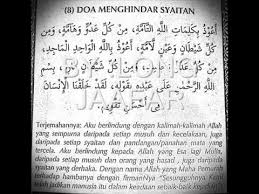 (8) DOA MENGHINDAR SYAITAN
أَعُوْذُ بِكَلِمَاتِ اللَّهِ التَّامَّةِ، مِنْ كُلِّ عَدُوٍّ وَهَامَّةٍ، وَ
مِنْ كُلِّ شَيْطَانٍ وَعَيْنٍ لَامَّةٍ، أَعُوْذُ بِاللَّهِ الْوَاحِدِ الْمَاجِدِ،
مِنْ كُلِّ عَدُوٍّ وَمِنْ كُلِّ شَيْطَانٍ بِسْمِ
اللَّهِ الرَّحْمَنِ لَقَدْ خَلَقْنَا الْإِنْسَانَ
فِي أَحْسَنِ تَقْوِيْمٍ.
Terjemahannya: Aku berlindung dengan kalimah-kalimah Allah
yang sempurna daripada setiap musuh dan kecelakaan, juga
daripada setiap syaitan dan pandangan/panahan mata yang
tercela. Aku berlindung kepada Allah yang Esa lagi Mulia,
daripada setiap musuh dan yang hasad, juga daripada setiap
syaitan yang derhaka. Dengan nama Allah yang Maha Pemurah
terhadap hambanya dengan firmanNya "Sesungguhnya Kami
telah jadikan manusia itu dalam keadaan sebaik-baik kejadian